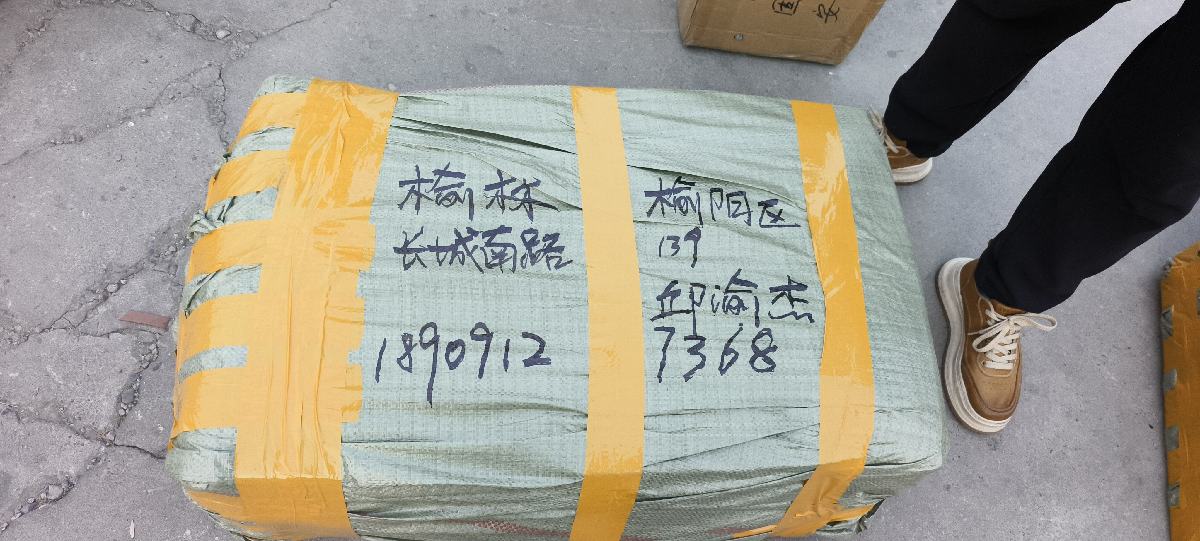 榆林 榆阳区
长城南路 139
邱渝杰
1890912 7368